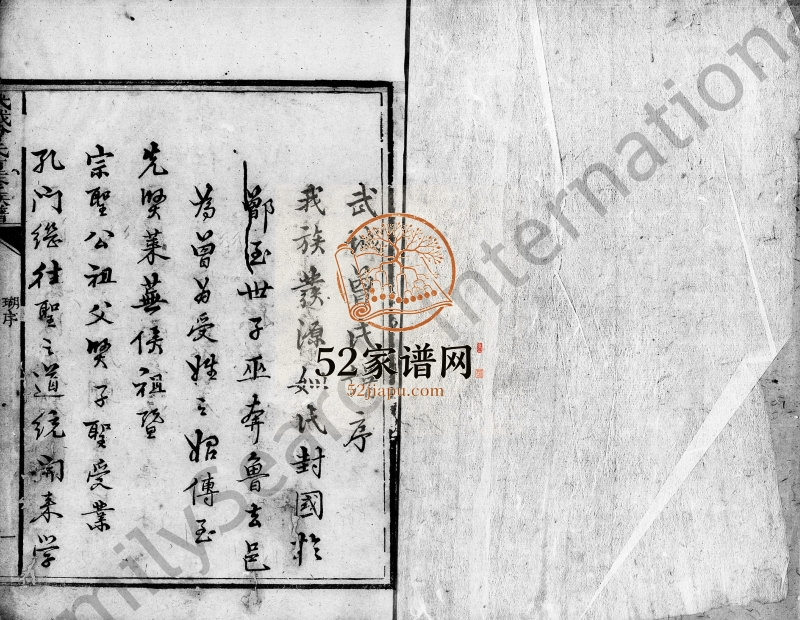 武 曾氏 序
我族發源姒氏封國於
鄫至世子巫奔魯去邑
為曾為受姓之始傳至
先賢萊蕪侯祖暨
宗聖公祖父賢子聖受業
孔門繼往聖之道統開來學
瑚序
一
52家谱网
52jiapu.com
milySearch Internationa